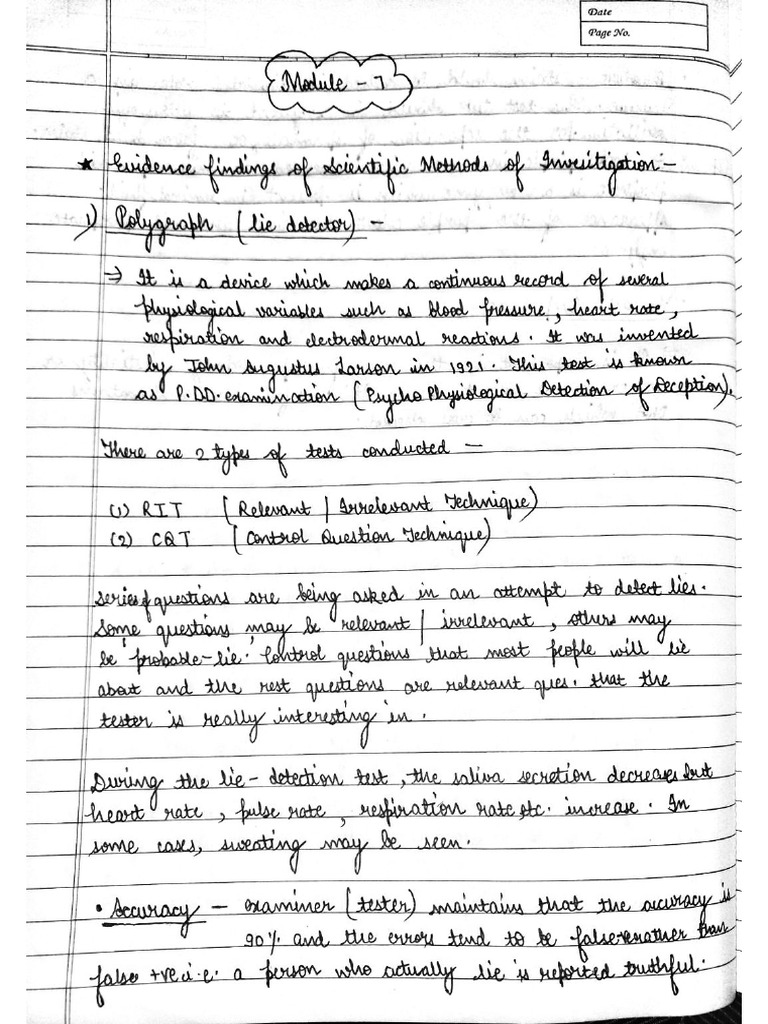 Date
Page No.
Module - 7
* Evidence findings of Scientific Methods of Investigation -
1) Polygraph (lie detector) -
→ It is a device which makes a continuous record of several
physiological variables such as blood pressure, heart rate,
respiration and electrodermal reactions. It was invented
by John Augustus Larson in 1921. This test is known
as P.DD. examination (Psycho Physiological Detection of Deception).
There are 2 types of tests conducted -
(1) RIT (Relevant / Irrelevant Technique)
(2) CQT (Control Question Technique)
Series of questions are being asked in an attempt to detect lies.
Some questions may be relevant / irrelevant, others may
be probable-lie. Control questions that most people will lie
about and the rest questions are relevant ques. that the
tester is really interesting in.
During the lie-detection test, the saliva secretion decreases but
heart rate, pulse rate, respiration rate, etc. increase. In
some cases, sweating may be seen.
• Accuracy - examiner (tester) maintains that the accuracy is
90% and the errors tend to be false -ve rather than
false +ve i.e. a person who actually lie is reported truthful.